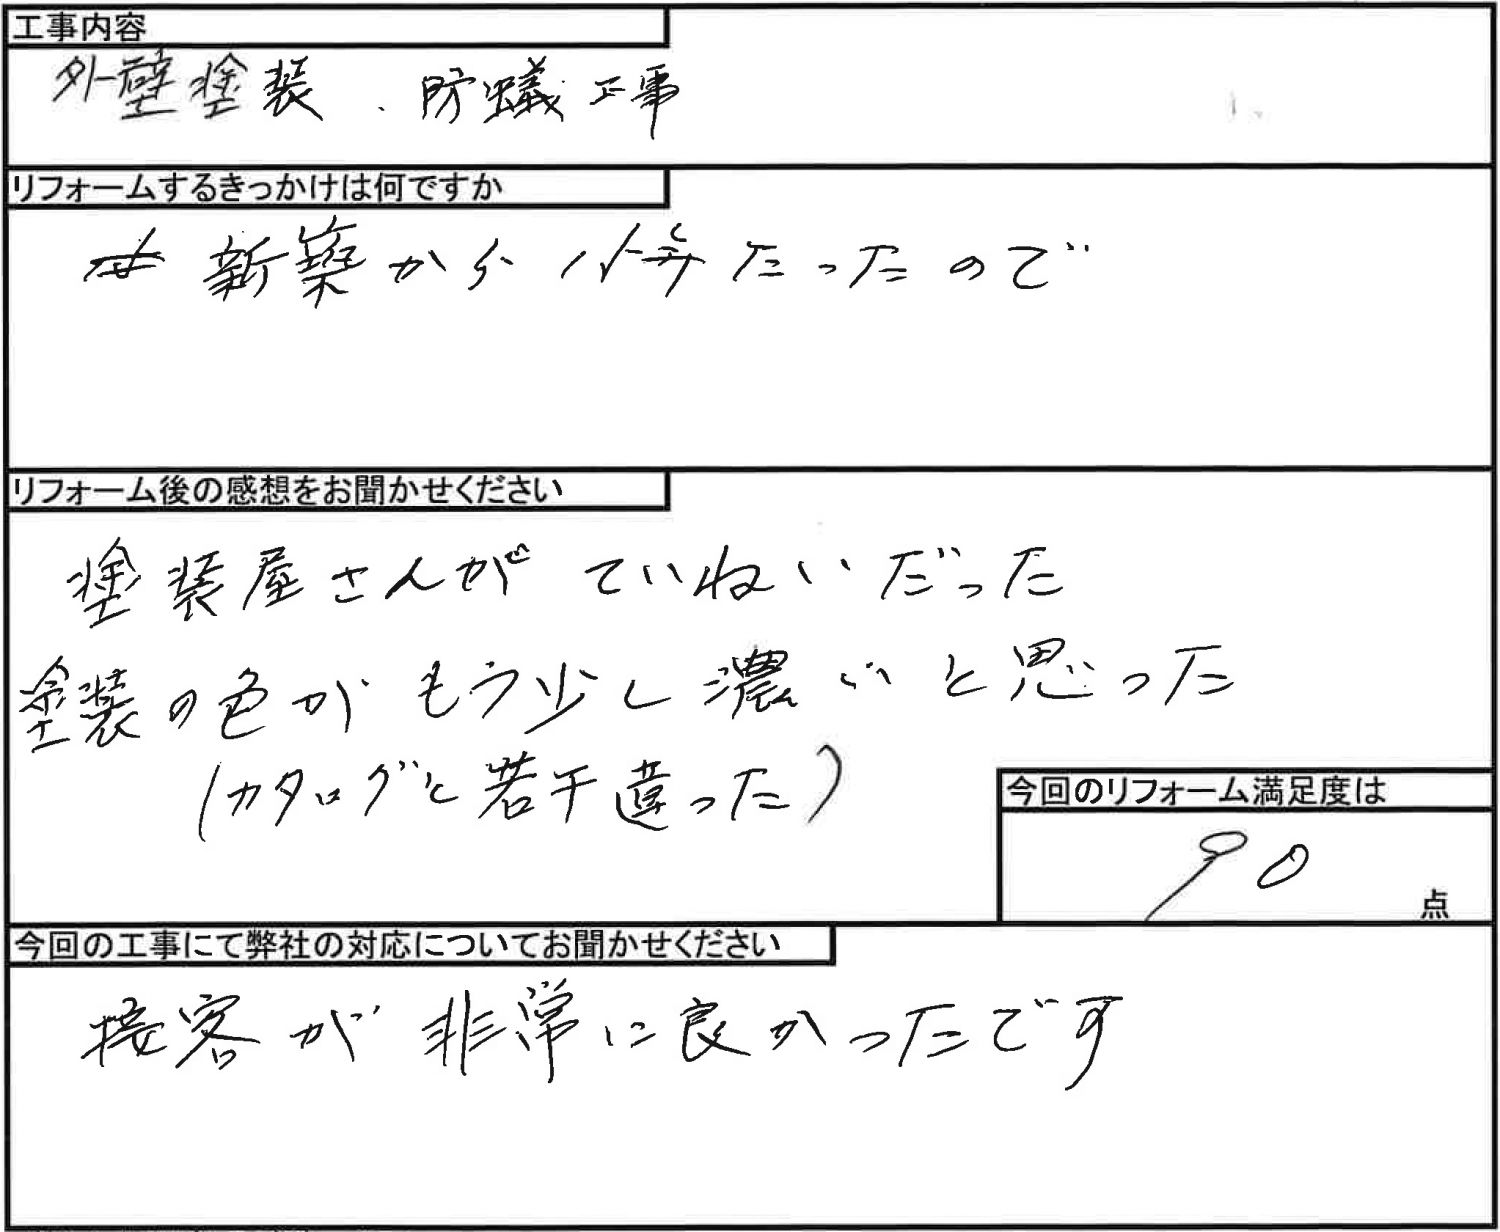 工事内容
外壁塗装、防蟻工事
リフォームするきっかけは何ですか
新築から 年たったので
リフォーム後の感想をお聞かせください
塗装屋さんがていねいだった
塗装の色がもう少し濃いと思った
(カタログと若干違った)
今回のリフォーム満足度は
90
点
今回の工事にて弊社の対応についてお聞かせください
接客が非常に良かったです